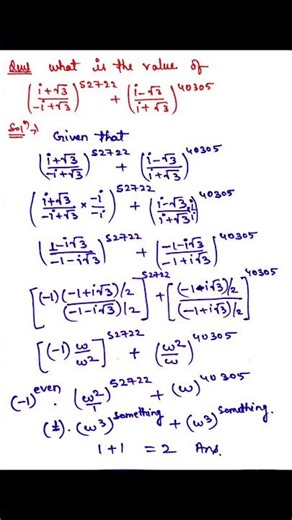 Ques what is the value of
((i+√3)/(-i+√3))^52722 + ((i-√3)/(i+√3))^40305
Solⁿ:→ Given that
((i+√3)/(-i+√3))^52722 + ((i-√3)/(i+√3))^40305
((i+√3)/(-i+√3) × (-i)/(-i))^52722 + ((i-√3)/(i+√3) i/i)^40305
((1-i√3)/(-1-i√3))^52722 + ((-1-i√3)/(-1+i√3))^40305
[(-1) ((-1+i√3)/2)/((-1-i√3)/2)]^52722 + [((-1-i√3)/2)/((-1+i√3)/2)]^40305
[(-1) ω/ω²]^52722 + (ω²/ω)^40305
(-1)^even · (ω²/1)^52722 + (ω)^40305
(1) · (ω3)^something + (ω3)^something.
1+1 = 2 Ans.